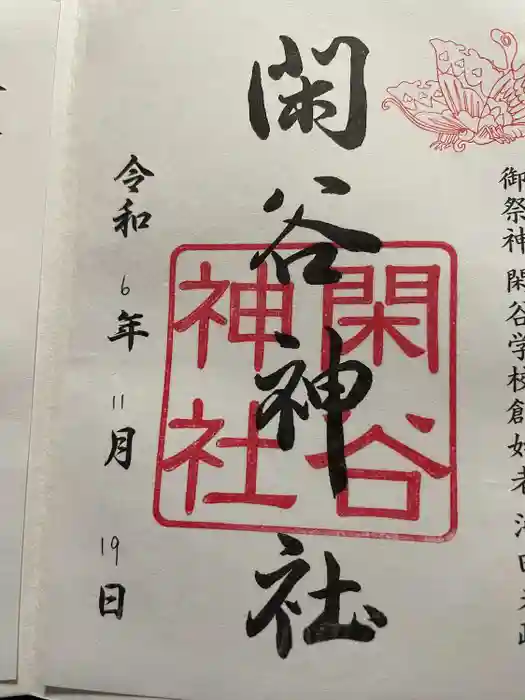 御祭神 閑谷学校創始者 津田永政
閑谷神社
閑谷
神社
令和 6年 11月 19日